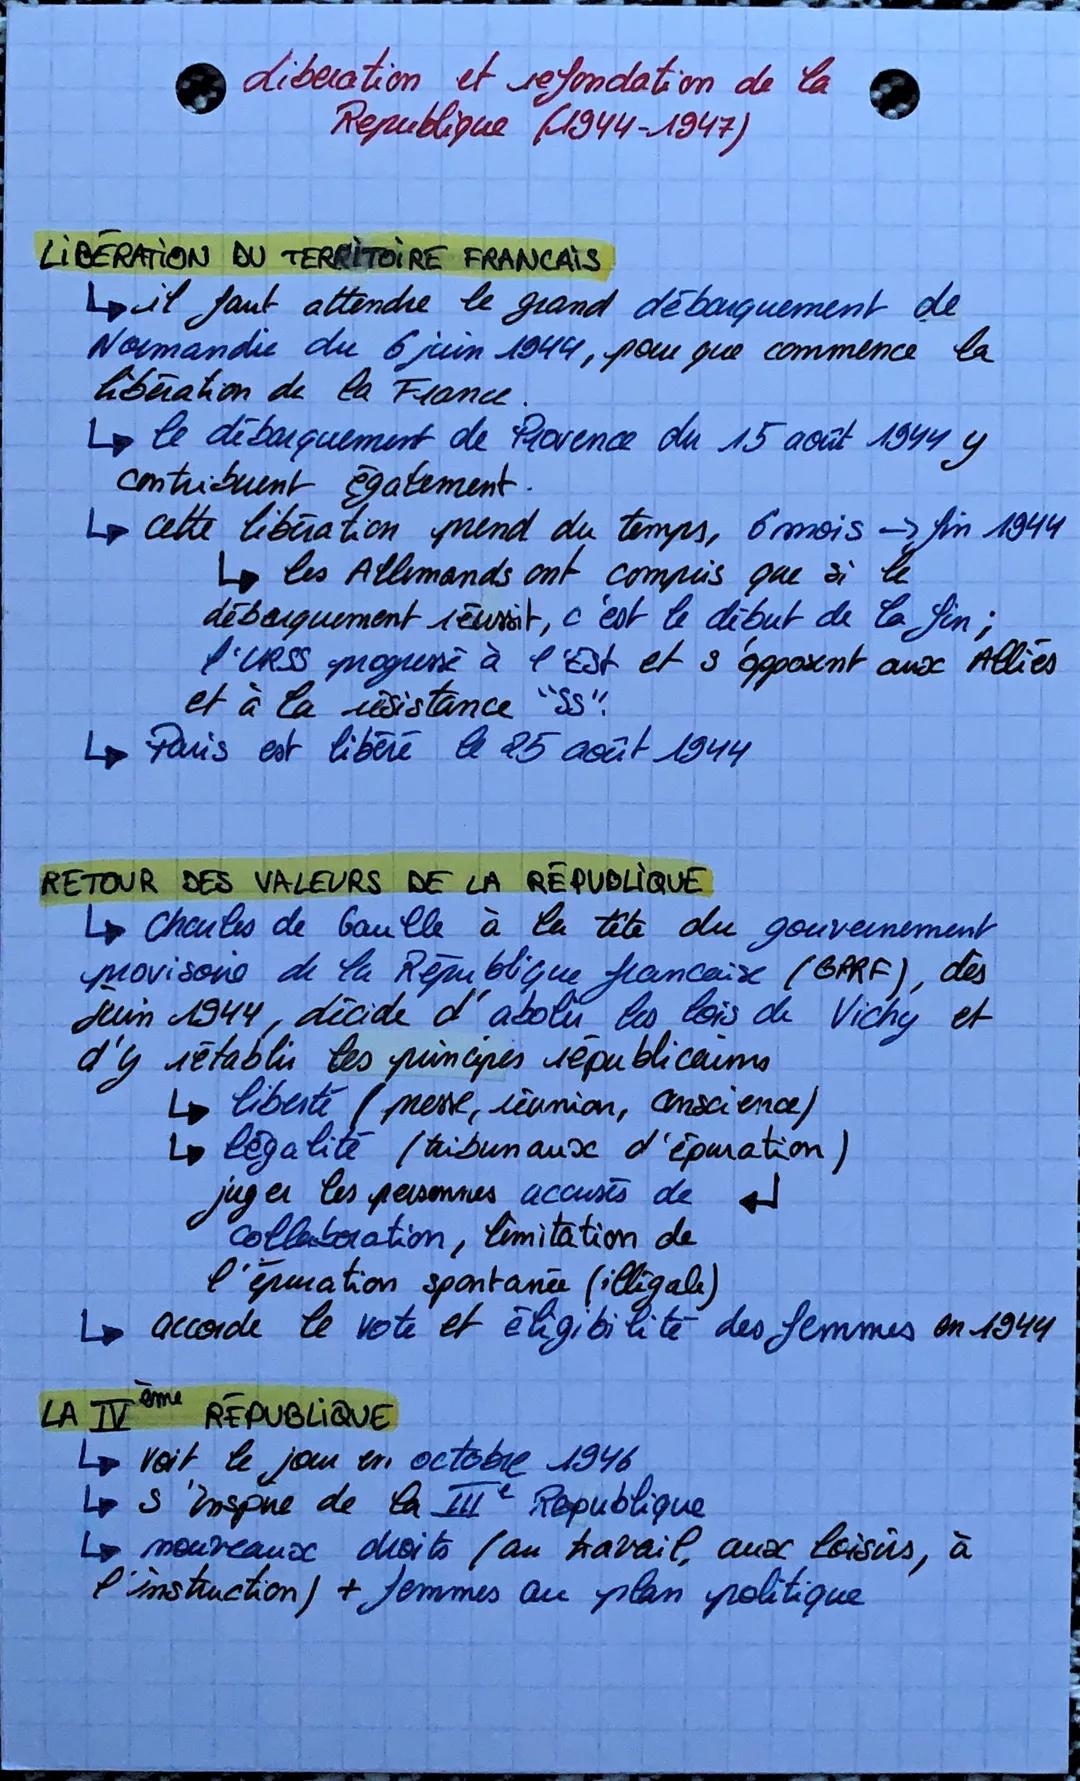 Libération et refondation de la
République (1944-1947)
LIBÉRATION DU TERRITOIRE FRANCAIS
↳ il faut attendre le grand débarquement de
Normandie du 6 juin 1944, pour que commence la
libération de la France.
↳ le débarquement de Provence du 15 août 1944 y
contribuent également.
↳ cette libération prend du temps, 6 mois → fin 1944
↳ les Allemands ont compris que si le
débarquement réussit, c'est le début de la fin ;
l'URSS progresse à l'Est et s'opposent aux Alliés
et à la résistance "SS".
↳ Paris est libéré le 25 août 1944
RETOUR DES VALEURS DE LA RÉPUBLIQUE
↳ Charles de Gaulle à la tête du gouvernement
provisoire de la République francaise (GPRF), dès
Juin 1944, décide d'abolir les lois de Vichy et
d'y rétablir les principes républicains
↳ liberté (presse, réunion, conscience)
↳ légalité (tribunaux d'épuration)
juger les personnes accusés de ↲
collaboration, limitation de
l'épuration spontanée (illégale)
↳ accorde le vote et éligibilité des femmes en 1944
LA IVème RÉPUBLIQUE
↳ voit le jour en octobre 1946
↳ s'inspire de la IIIe République
↳ nouveaux droits (au travail, aux loisirs, à
l'instruction) + femmes au plan politique